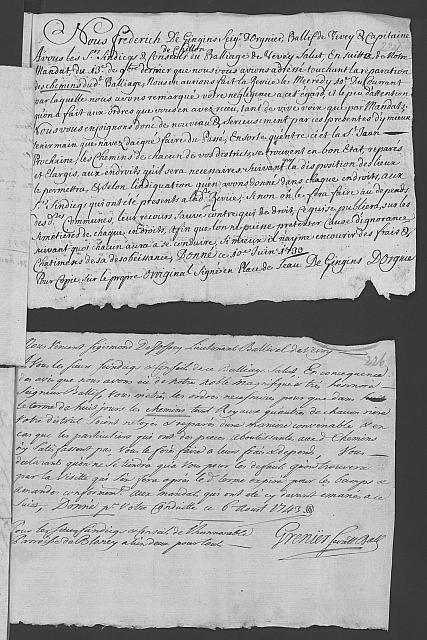 Nous Frederich De Gingins Seig.r D'orgnier, Ballif de Vevey & Capitaine
de Chillon
A vous les S.rs Sindiqs & Conseil du Balliage de Vevey Salut, En suitte de Notre
Mandat du 13.e dernier que nous vous avions adressé touchant la reparation
des chemins dud. Balliage, Nous en aurions fait la Revüe le Mecredy 10.e Du Courant
par laquelle nous avons remarqué votre negligence a cet égard et le peu d'attention
qu'on a fait aux ordres que vous en avez reçu, tant de vive voix que par Mandats;
Nous vous enjoignons donc de nouveau & Serieusement par ces presentes d'y mieux
tenir main que n'avez daigné faire du Passé, En sorte qu'entre ci et la S.t Jean
Prochaine, les Chemins de chacun de vos districts, se trouvent en bon Etat, reparés
et Elargis, aux endroits qu'il sera necessaire, Suivant que la disposition des lieux
le permettra, & Selon l'indiquation qu'en avons donné dans chaque endroits, aux
S.rs Sindiqs qui ont été presents a lad. Revüe; Sinon on le fera faire au depends
des d.es Communes, leur recours Sauve contre qui de droit, Ce qui se publiera sur les
Simetieres de chaque endroits, afin que l'on ne puisse pretexter Cause d'ignorance
suivant quoi chacun aura a se conduire, Si mieux il n'ayme encourir des frais &
Chatimens de sa desobeissance, Donné ce 10.e Juin 1739
Pour Copie Sur le propre original Signé en Place de Seau De Gingins D'orgnie
226
Nous Vincent Sigismond Lieutenant Ballival de Vevey
Vous les Sieurs Sindiqs & Conseil de ce Balliage Salut En consequence
de avis que nous avons eu de notre Noble Magnifique & tres honnoré
Seigneur Ballif, Vous mettrés les ordres necessaires pour que dans
le terme de huit jours les chemins tant Royaux que autres de chacun riere
Votre district Soient netoyés & reparé d'une maniere convenable & en
cas que les particuliers qui ont des pieces aboutissantes aux d. Chemins
n'y Satisfassent pas Vous le ferés faire a leurs frais & depend, Vous
declarant qu'on se tiendra a Vous pour les defauts qu'on trouvera
par la Visitte qui s'en fera apres le d. terme expiré pour les Bamps se
demander conformement aux Mandat qui ont été cy devant emanés a ce
Sujet, Donné p.r Votre Conduitte ce 6.e Aoust 1743
Pour les Sieurs Sindiqs & Conseil de l'honnorable
Parroisse de Blonay a lieu deux pour tout
Grenier